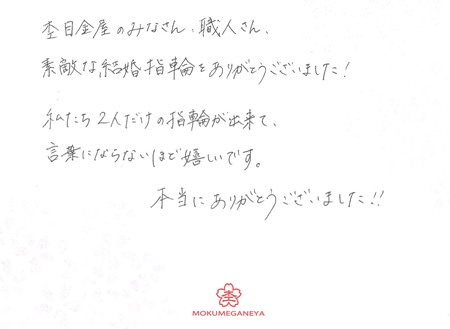 杢目金屋のみなさん、職人さん、
素敵な結婚指輪をありがとうございました!
私たち2人だけの指輪が出来て、
言葉にならないほど嬉しいです。
本当にありがとうございました!!
杢
MOKUMEGANEYA